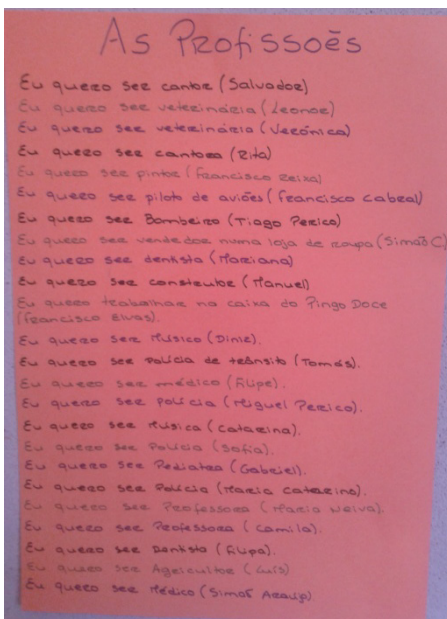 As Profissoẽs
Eu quero ser cantor (Salvador)
Eu quero ser veterinária (Leonor)
Eu quero ser veterinária (Verónica)
Eu quero ser cantora (Rita)
Eu quero ser pintor (Francisco Reixa)
Eu quero ser piloto de aviões (Francisco Cabral)
Eu quero ser Bombeiro (Tiago Perico)
Eu quero ser vendedor numa loja de roupa (Simão C)
Eu quero ser dentista (Mariana)
Eu quero ser construtor (Manuel)
Eu quero trabalhar na caixa do Pingo Doce
(Francisco Elvas).
Eu quero ser Músico (Dinis).
Eu quero ser Polícia de trânsito (Tomás).
Eu quero ser médico (Filipe).
Eu quero ser polícia (Miguel Perico).
Eu quero ser Música (Catarina).
Eu quero ser Polícia (Sofia).
Eu quero ser Pediatra (Gabriel).
Eu quero ser Polícia (Maria Catarina).
Eu quero ser Professora (Maria Neiva).
Eu quero ser Professora (Camila).
Eu quero ser Dentista (Filipa).
Eu quero ser Agricultor (Luís)
Eu quero ser Médico (Simão Araújo)